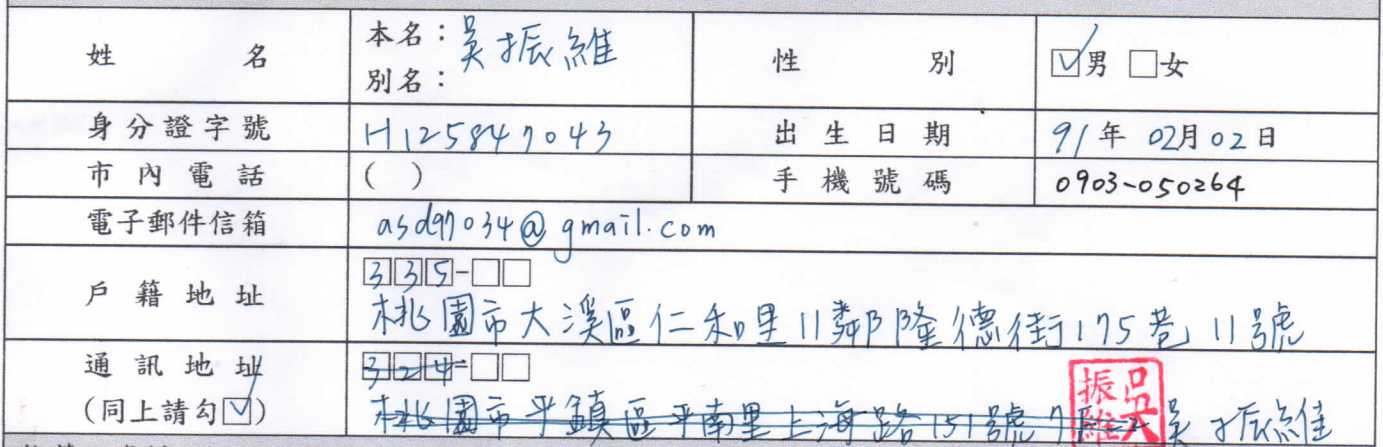 姓名 本名：吳振維 性別 ☑男 □女
別名：
身分證字號 H125847043 出生日期 91年02月02日
市內電話 ( ) 手機號碼 0903-050264
電子郵件信箱 asd97034@gmail.com
戶籍地址 335-□□
桃園市大溪區仁和里11鄰隆德街175巷11號
通訊地址 324-□□
(同上請勾☑) 桃園市平鎮區平南里上海路151號7 吳振維
吳振維